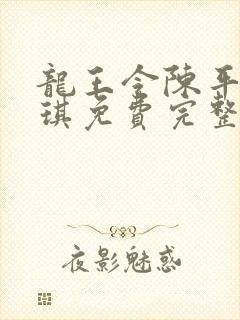 龍王令陳平
琪免費完整
夜影魅惑